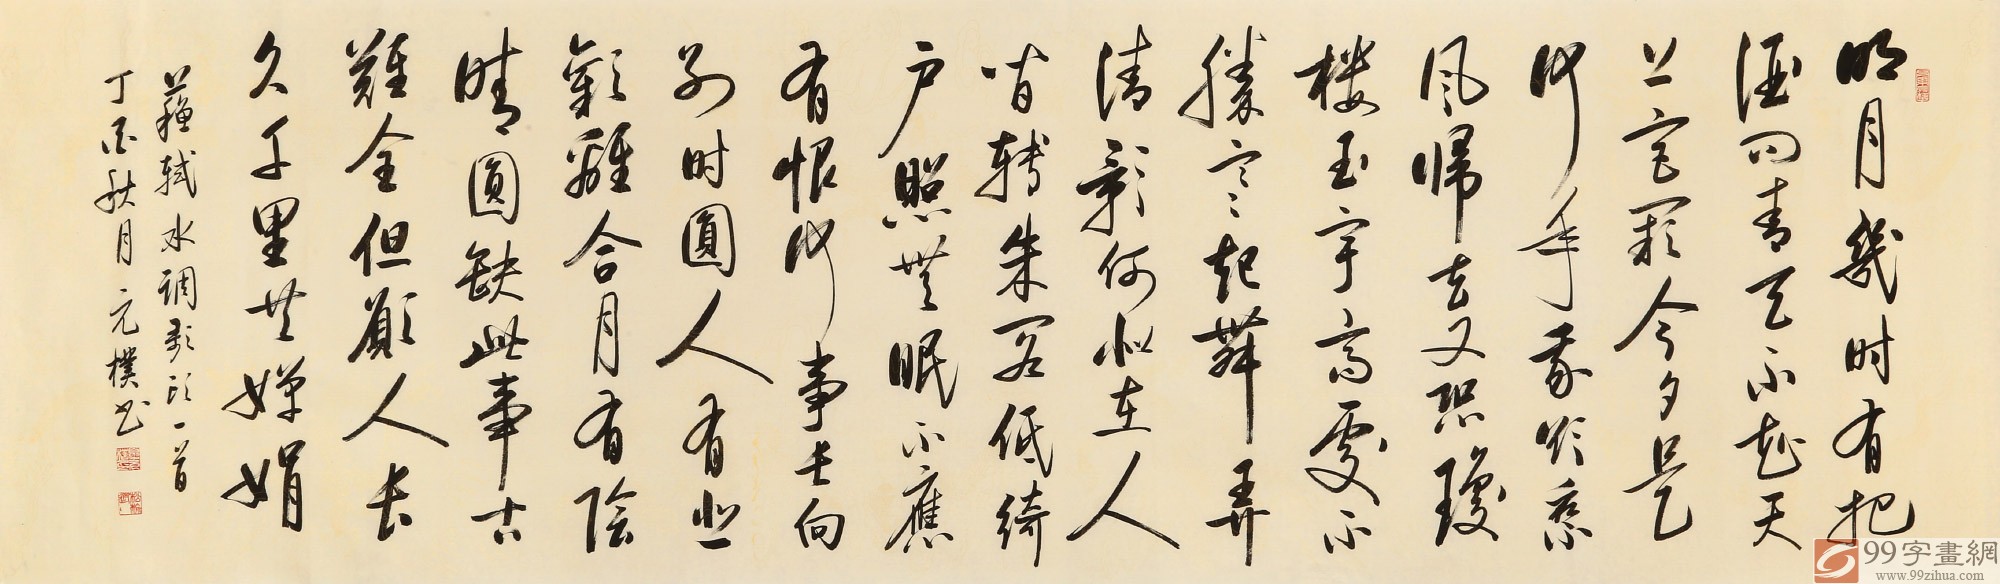 明月幾时有把
酒问青天不知天
上宫闕今夕是
何年我欲乘
风帰去又恐瓊
楼玉宇高處不
勝寒起舞弄
清影何似在人
间转朱阁低绮
户照無眠不應
有恨何事长向
别时圓人有悲
歡離合月有陰
晴圓缺此事古
難全但願人长
久千里共嬋娟
蘇轼水调歌头一首
丁酉秋月元樸书
99字畫網
www.99zihua.com